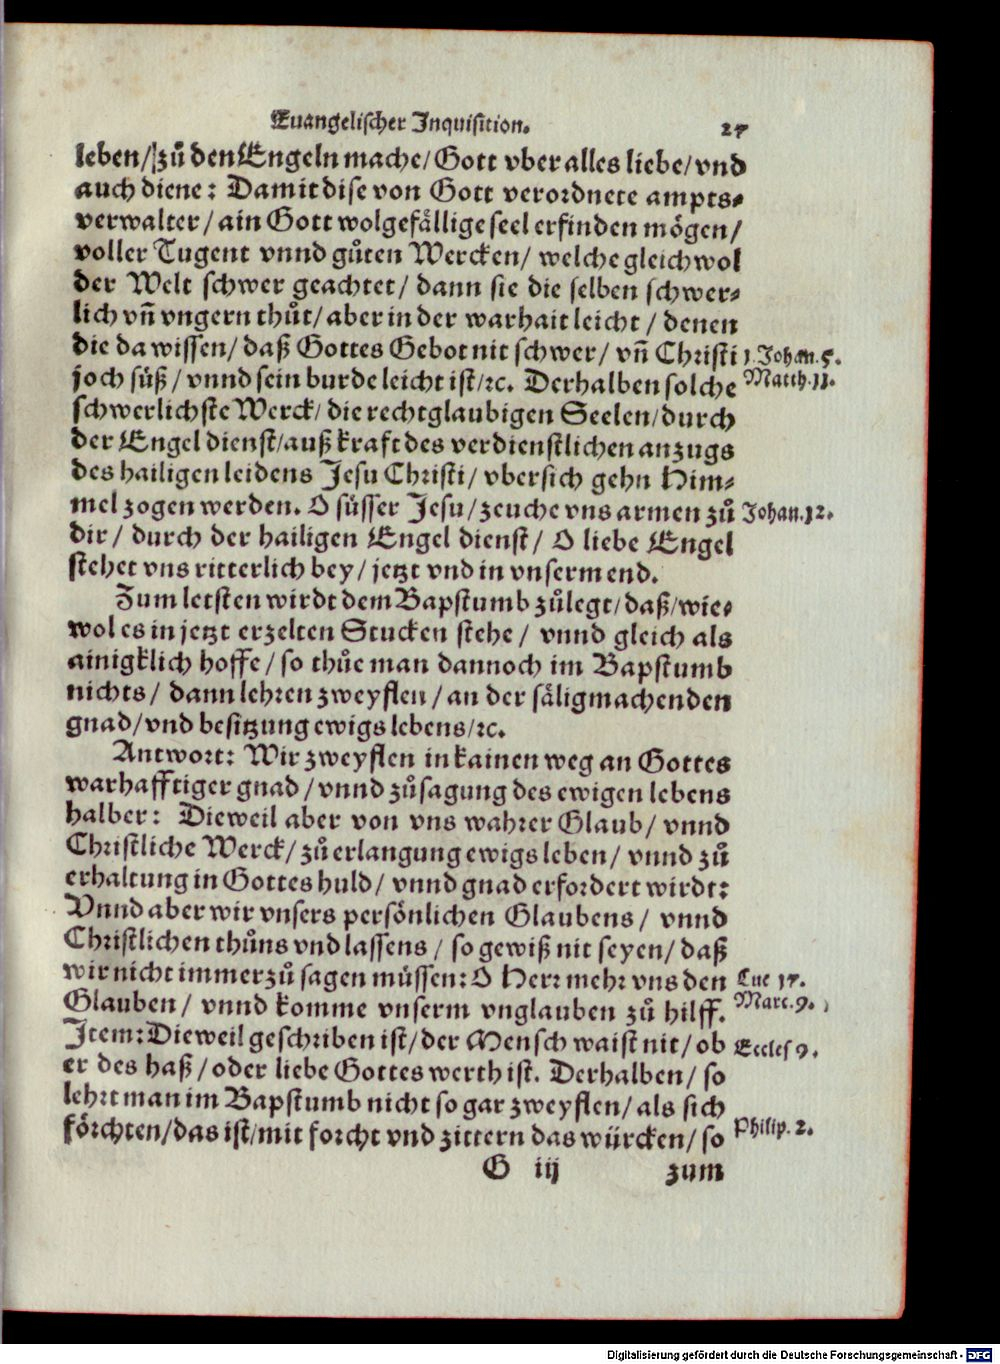 Euangelischer Inquisition. 27
leben/ zů den Engeln mache/ Gott vber alles liebe/ vnd
auch diene: Damit dise von Gott verordnete ampts-
verwalter/ ain Gott wolgefällige seel erfinden mögen/
voller Tugent vnnd gůten Wercken/ welche gleichwol
der Welt schwer geachtet/ dann sie die selben schwer-
lich vñ vngern thůt/ aber in der warhait leicht/ denen
die da wissen/ daß Gottes Gebot nit schwer/ vñ Christi 1. Johan. 5.
joch süß/ vnnd sein burde leicht ist/ ꝛc. Derhalben solche Matth. 11.
schwerlichste Werck/ die rechtglaubigen Seelen/ durch
der Engel dienst/ auß kraft des verdienstlichen anzugs
des hailigen leidens Jesu Christi/ vbersich gehn Him-
mel zogen werden. O süsser Jesu/ zeuche vns armen zů Johan. 12.
dir/ durch der hailigen Engel dienst/ O liebe Engel
stehet vns ritterlich bey/ jetzt vnd in vnserm end.
Zum letsten wirdt dem Bapstumb zůlegt/ daß/ wie-
wol es in jetzt erzelten Stucken stehe/ vnnd gleich als
ainigklich hoffe/ so thůe man dannoch im Bapstumb
nichts/ dann lehren zweyflen/ an der säligmachenden
gnad/ vnd besitzung ewigs lebens/ ꝛc.
Antwort: Wir zweyflen in kainen weg an Gottes
warhafftiger gnad/ vnnd zůsagung des ewigen lebens
halber: Dieweil aber von vns wahrer Glaub/ vnnd
Christliche Werck/ zů erlangung ewigs leben/ vnnd zů
erhaltung in Gottes huld/ vnnd gnad erfordert wirdt:
Vnnd aber wir vnsers persönlichen Glaubens/ vnnd
Christlichen thůns vnd lassens/ so gewiß nit seyen/ daß
wir nicht immerzů sagen müssen: O Herr mehr vns den Luc 17.
Glauben/ vnnd komme vnserm vnglauben zů hilff. Marc. 9.
Item: Dieweil geschriben ist/ der Mensch waist nit/ ob Eccles 9.
er des haß/ oder liebe Gottes werth ist. Derhalben/ so
lehrt man im Bapstumb nicht so gar zweyflen/ als sich
förchten/ das ist/ mit forcht vnd zittern das würcken/ so Philip. 2.
G iij zum
Digitalisierung gefördert durch die Deutsche Forschungsgemeinschaft - DFG